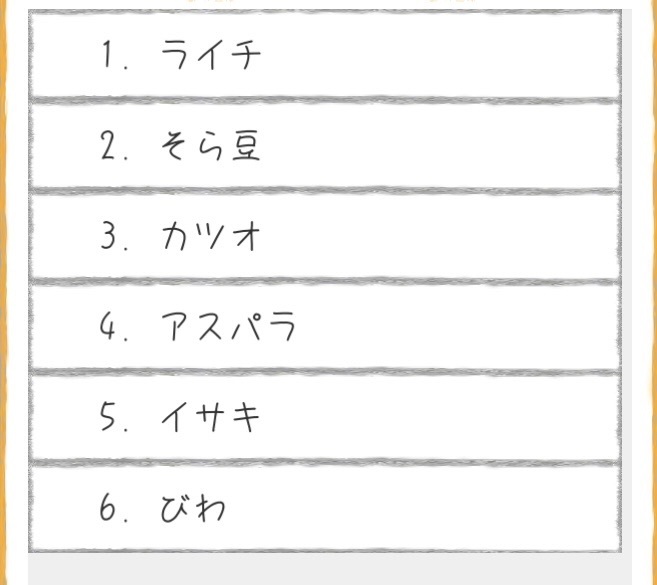 1. ライチ
2. そら豆
3. カツオ
4. アスパラ
5. イサキ
6. びわ